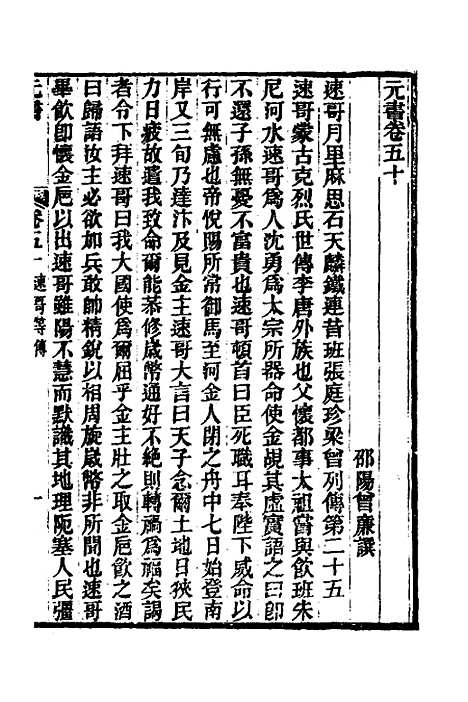 元書卷五十
邵陽曾廉譔
速哥月里麻思石天麟鐵連昔班張庭珍梁曾列傳第二十五
速哥蒙古克烈氏世傳李唐外族也父懷都事太祖嘗與飲班朱
尼河水速哥爲人沈勇爲太宗所器命使金覘其虛實語之曰卽
不還子孫無憂不富貴也速哥頓首曰臣死職耳奉陛下威命以
行可無慮也帝悅賜所常御馬至河金人閉之舟中七日始登南
岸又三旬乃達汴及見金主速哥大言曰天子念爾土地日狹民
力日疲故遣我致命爾能恭修歲幣通好不絕則轉禍爲福矣謁
者令下拜速哥曰我大國使爲爾屈乎金主壯之取金卮飮之酒
曰歸語汝主必欲加兵敢帥精銳以相周旋歲幣非所聞也速哥
畢飮卽懷金卮以出速哥雖陽不慧而默識其地理阨塞人民彊
元書
卷五十 速哥等傳
一